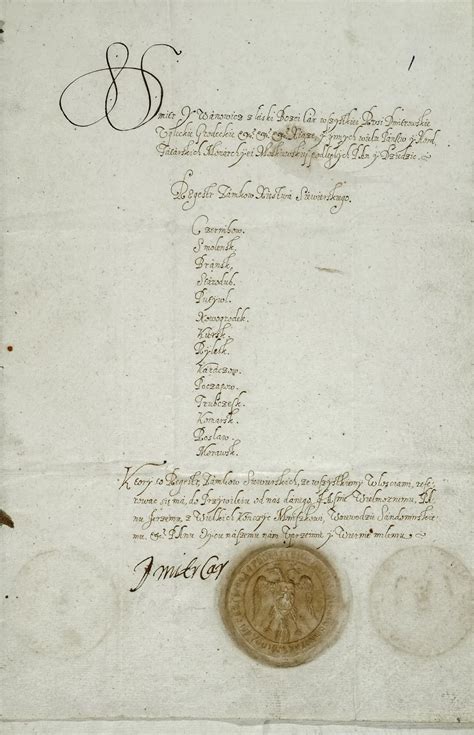 1
Dmitr Iwanowicz z łaski Bozei Car wszytkiei Rusi Dmitrowskie
Uglickie Grodeckie etc. etc. etc. Xiąze, y innych wielu Panstw y Hord
Tatarskich Monarchyei Moskiewskiei podległych Pan y Dziedzic.
Regestr Zamkow Xięstwa Siewierskiego.
Czernihow.
Smolensk.
Bransk.
Starodub.
Putywl.
Nowogrodek.
Kursk.
Rylsk.
Karaczow.
Poczapow.
Trubczesk.
Komarsk.
Roslaw.
Morawsk.
Ktory to Regestr Zamkow Siewierskich, ze wszytkiemi Włosciami, refe-
rować się ma, do Przywileiu od nas danego, Jasnie Wielmoznemu, Pa-
nu Jerzemu, z Wielkich Konczyc Mniszkowi, Woiewodzie Sandomirskie-
mu, etc. Panu Oycu naszemu nam Uprzeime y Wiernie miłemu.
Dmitr Car